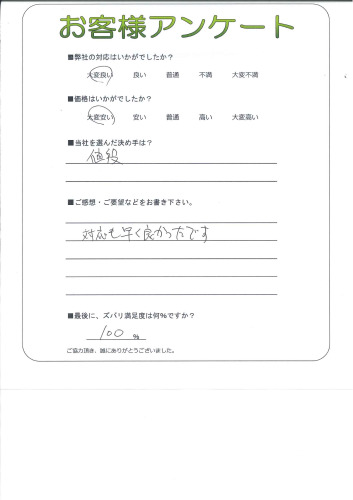 お客様アンケート
■弊社の対応はいかがでしたか?
大変良い 良い 普通 不満 大変不満
■価格はいかがでしたか?
大変安い 安い 普通 高い 大変高い
■当社を選んだ決め手は?
値段
■ご感想・ご要望などをお書き下さい。
対応も早く良かったです
■最後に、ズバリ満足度は何%ですか?
100 %
ご協力頂き、誠にありがとうございました。